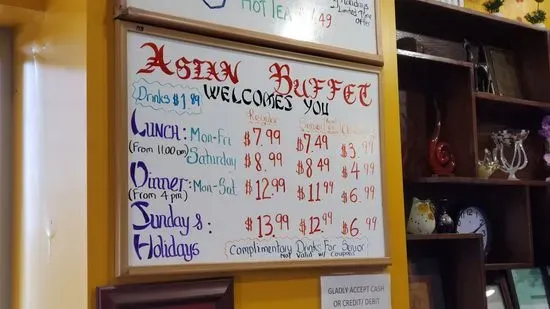 HOT TEA $1.49
Holidays
Limited Time
Offer
ASIAN BUFFET
Drinks $1.99
WELCOMES YOU
Regular
LUNCH: Mon-Fri $7.99 $7.49 $3.99
(From 11:00am) Saturday $8.99 $8.49 $4.99
Dinner: Mon-Sat $12.99 $11.99 $6.99
(From 4pm)
Sundays: $13.99 $12.99 $6.99
Holidays
Complimentary Drinks For Senior
Not Valid w/ Coupons
GLADLY ACCEPT CASH
OR CREDIT/ DEBIT